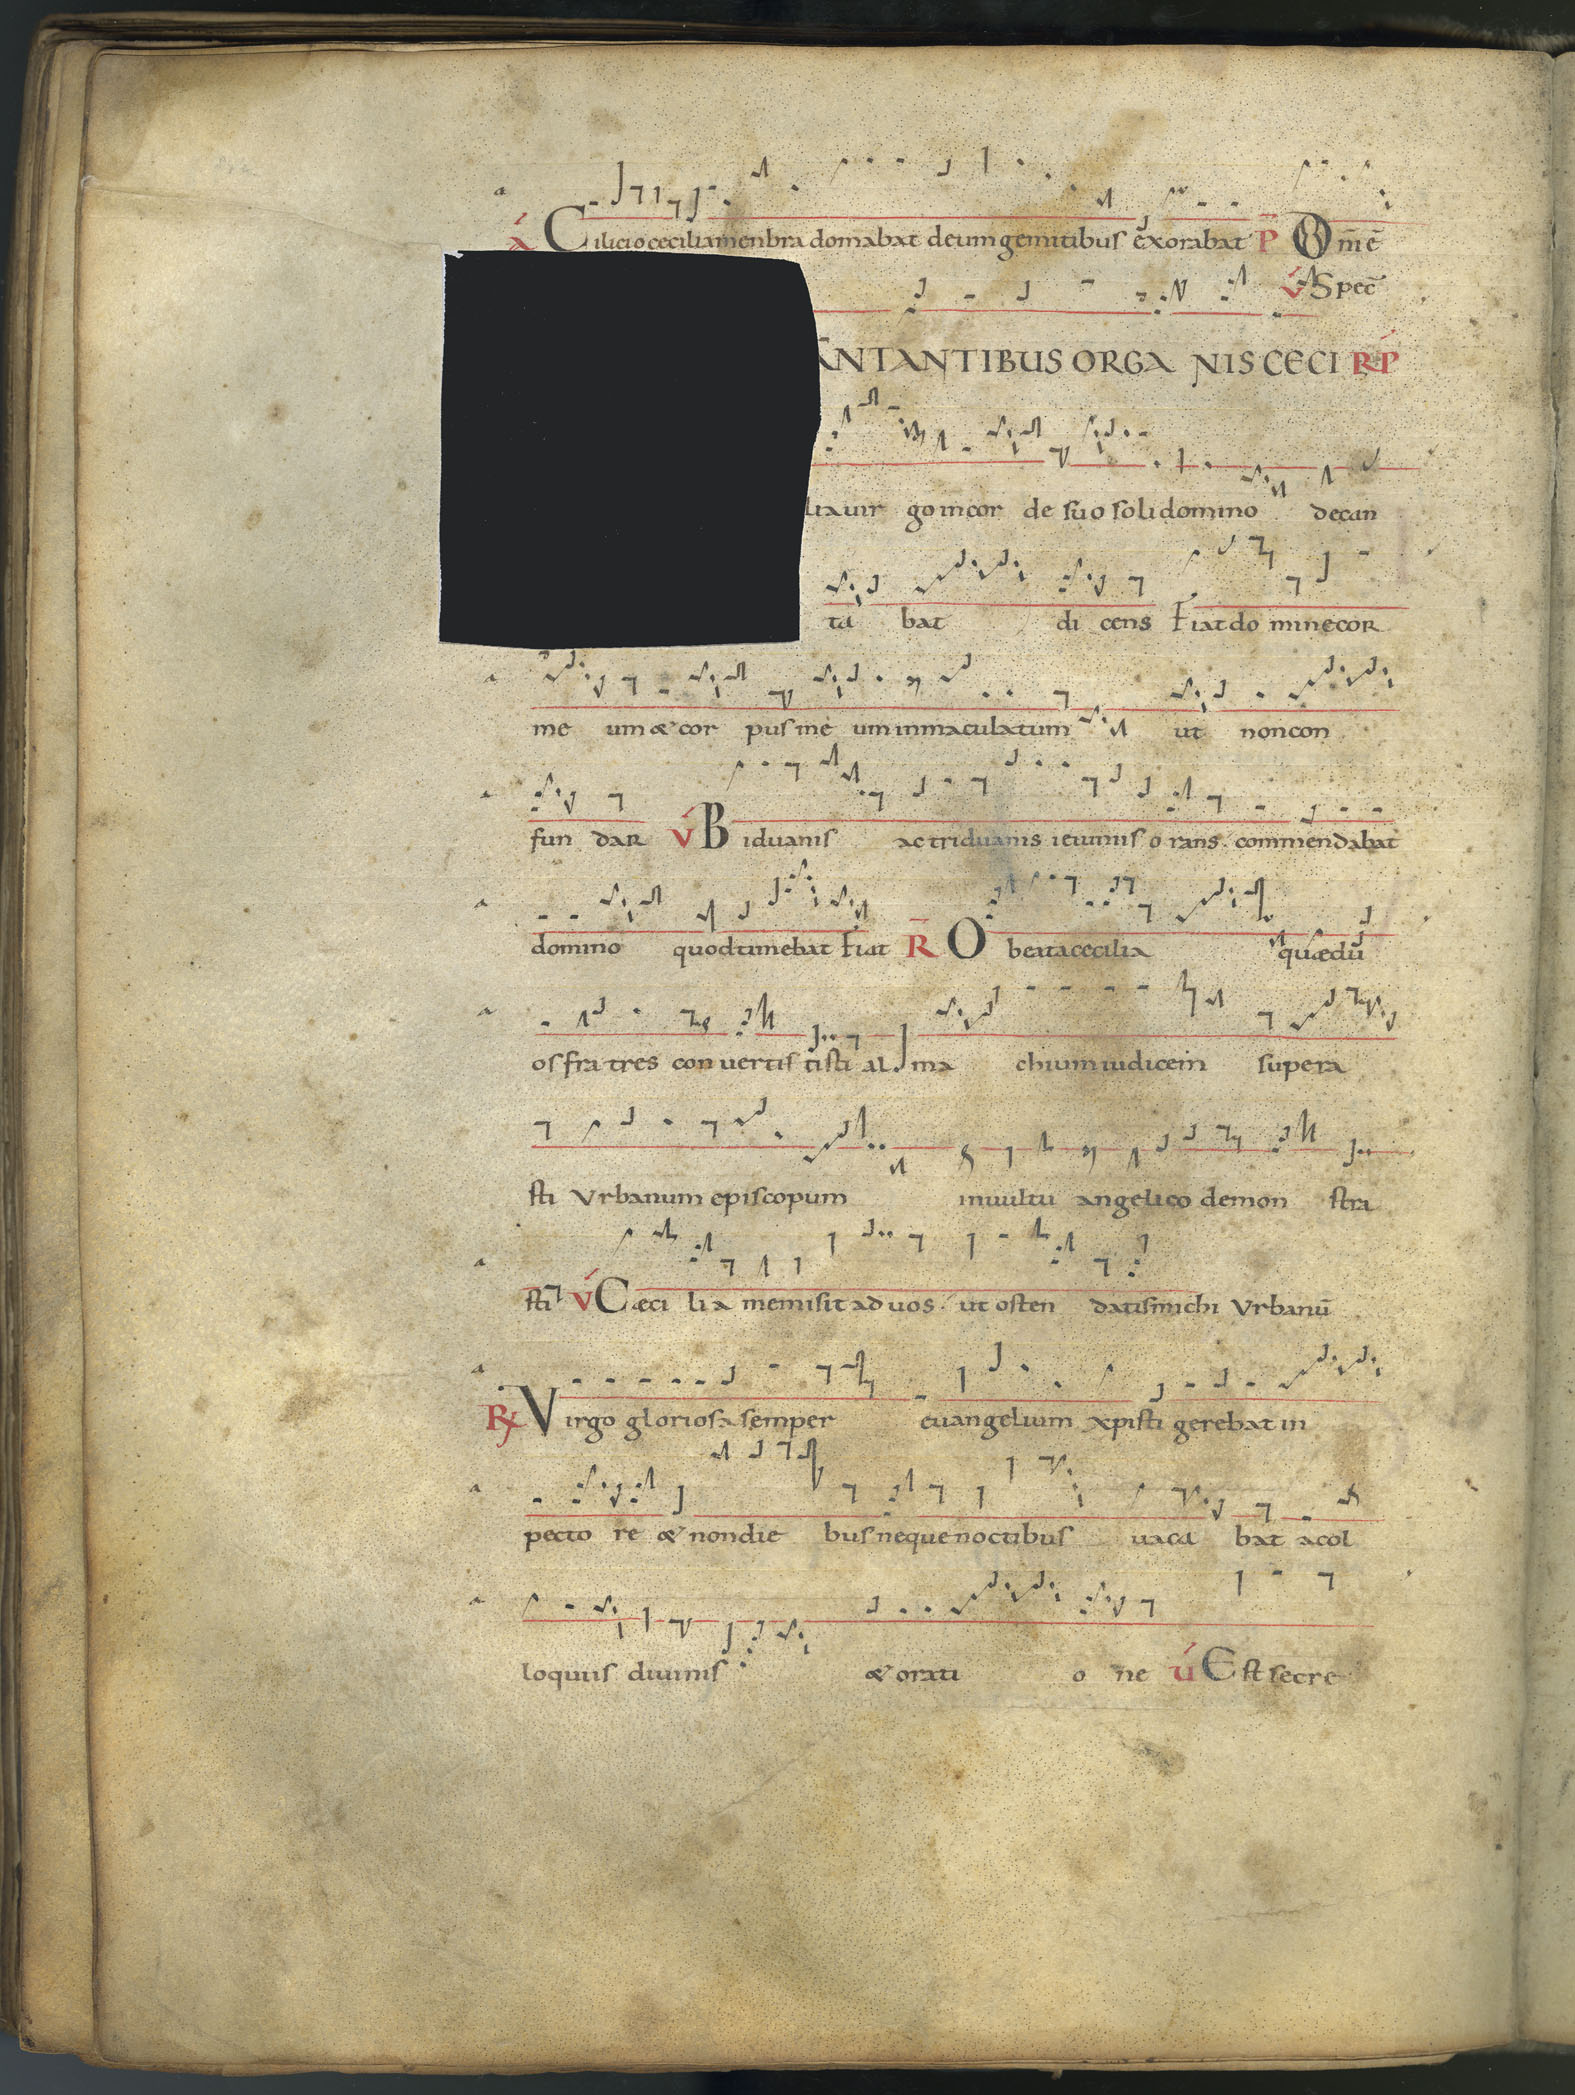 A Cilicio cecilia menbra domabat deum gemitibus exorabat P Dñi ē
V Spec̄
ANTANTIBUS ORGA NIS CECI RP
lia uir go in cor de suo soli domino decan
ta bat di cens Fiat do mine cor
me um & cor pus me um inmaculatum ut non con
fun dar V Biduanis ac triduanis ieiuniis o rans commendabat
domino quod timebat Fiat R O beata cecilia quæ dū
os fra tres con uertis tisti al ma chium iudicem supera
sti Vrbanum episcopum in uultu angelico demon stra
sti V Cæci li a me misit ad uos ut osten datis michi Vrbanū
R Virgo gloriosa semper euangelium xpisti gerebat in
pecto re & non die bus neque noctibus uaca bat a col
loquiis diuinis & orati o ne V Est secre